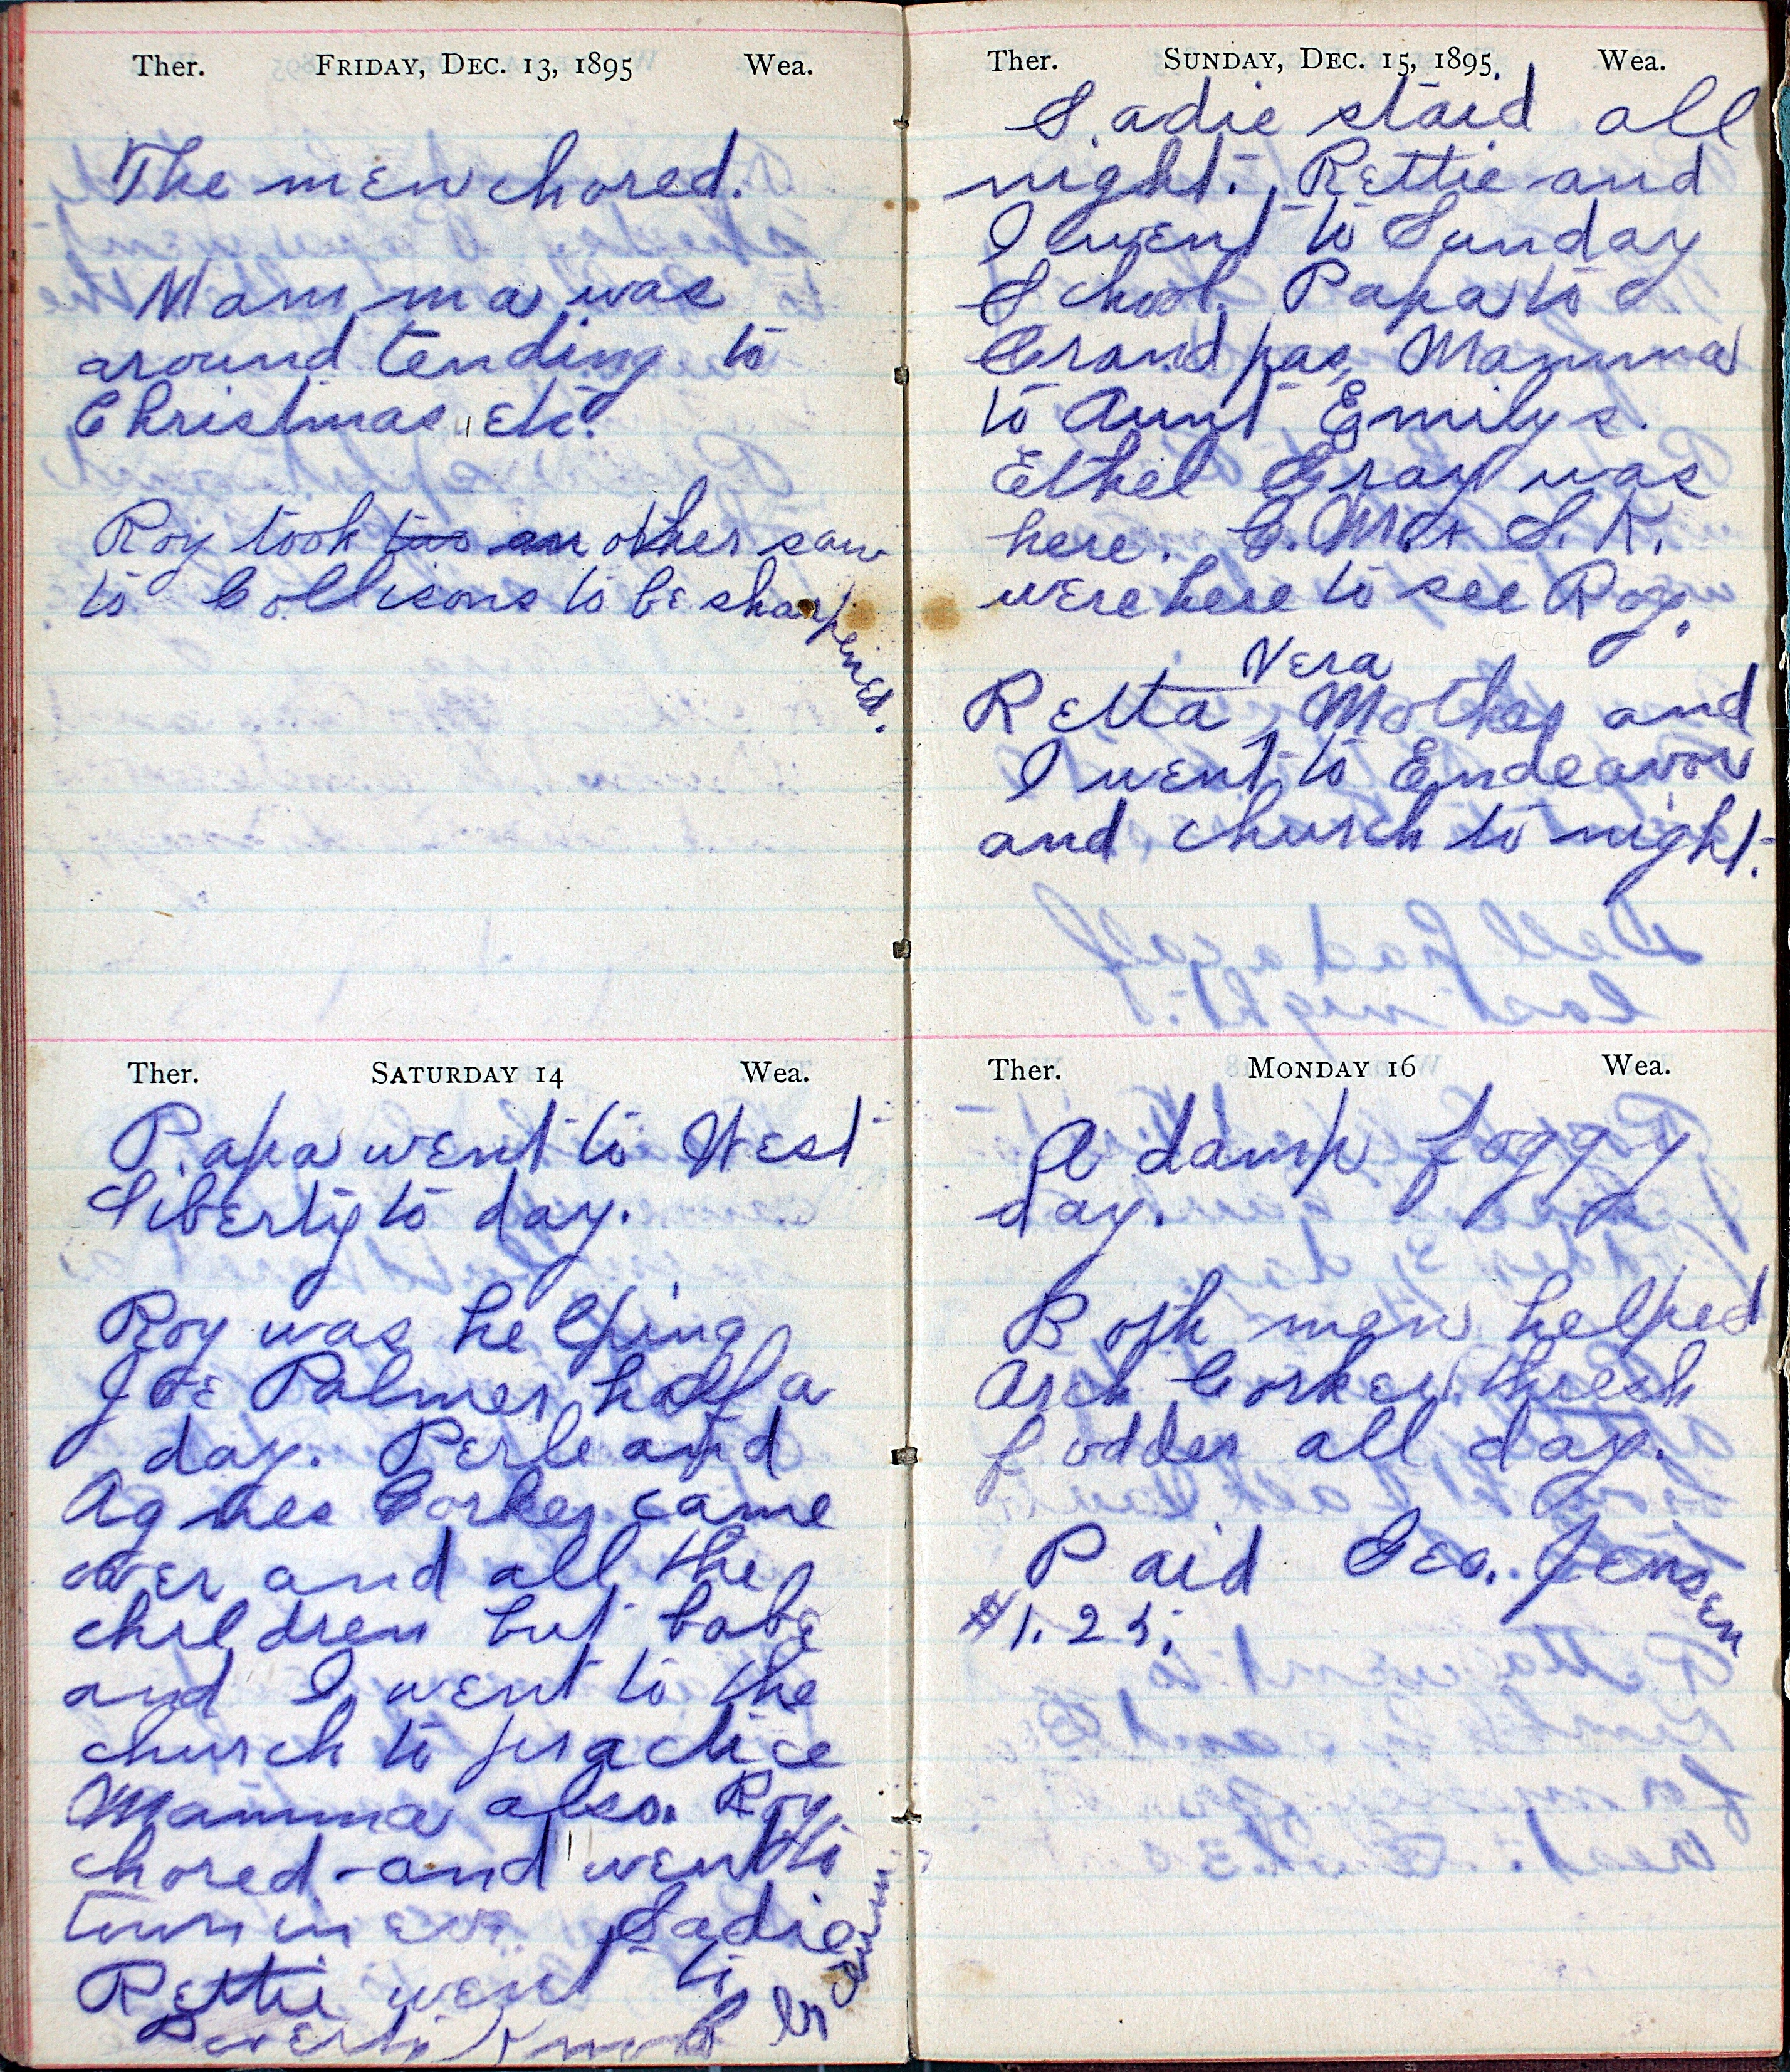 Ther. FRIDAY, DEC. 13, 1895 Wea.
The men chored.
Mamma was
around tending to
Christmas etc.
Roy took two another saw
to Collisons to be sharpened.
Ther. SATURDAY 14 Wea.
Papa went to West
Liberty to day.
Roy was helping
Joe Palmer half a
day. Perle and
Agnes Corker came
over and all the
children but babe
and I went to the
church to practice
Mamma also. Roy
chored - and went to
town in eve. Sadie
Rettie went to
Ther. SUNDAY, DEC. 15, 1895. Wea.
Sadie staid all
night. Rettie and
I went to Sunday
School. Papa to
Grandpas, Mamma
to Aunt Emilys.
Ethel Gray was
here. C. M. & S. K.
were here to see Roy.
Vera
Retta, Mother and
I went to Endeavor
and church to night.
Ther. MONDAY 16 Wea.
A damp foggy
day.
Both men helped
Arch Corker thresh
fodder all day.
Paid Geo. Jensen
$1.25.